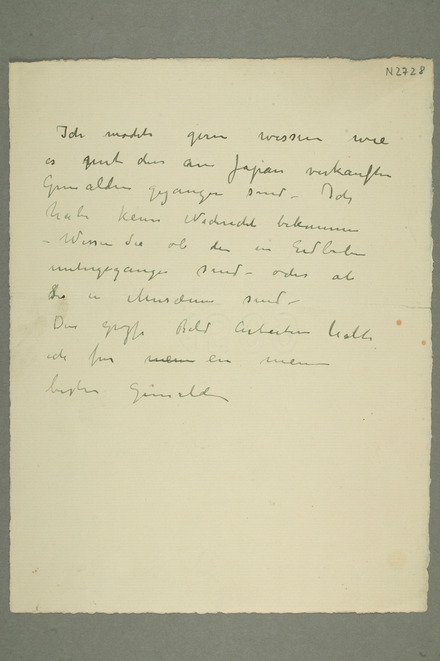 N2728
Ich möchte gern wissen wie
es mit den an Japan verkauften
Gemälden gegangen sind – Ich
habe keine Nachricht bekommen
– Wissen Sie ob die in Erdbeben
untergegangen sind – oder ob
Sie in Museum sind –
Das große Bild Arbeitern halte
ich für einen meiner
besten Gemälde